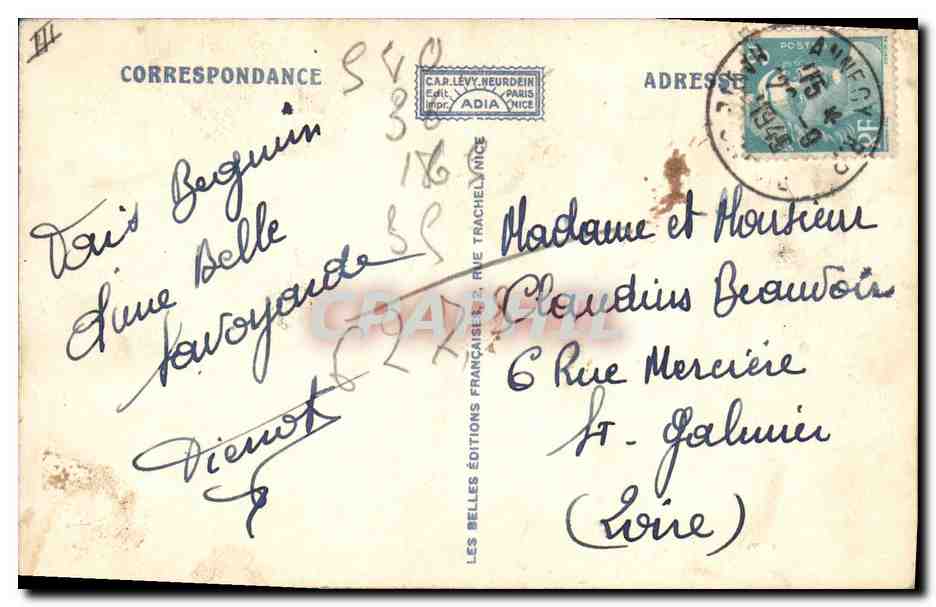 III
CORRESPONDANCE
C.A.P. LÉVY. NEURDEIN
Edit. PARIS
Impr. ADIA NICE
ADRESSE
POSTES
ANNECY
1945
RF
540
30
163
35
Beguin
d'une Belle
Savoyarde
CPAPHIL
LES BELLES ÉDITIONS FRANÇAISES, 2, RUE TRACHEL, NICE
Madame et Monsieur
Claudius Beauvoir
6 Rue Mercière
St-Galmier
(Loire)